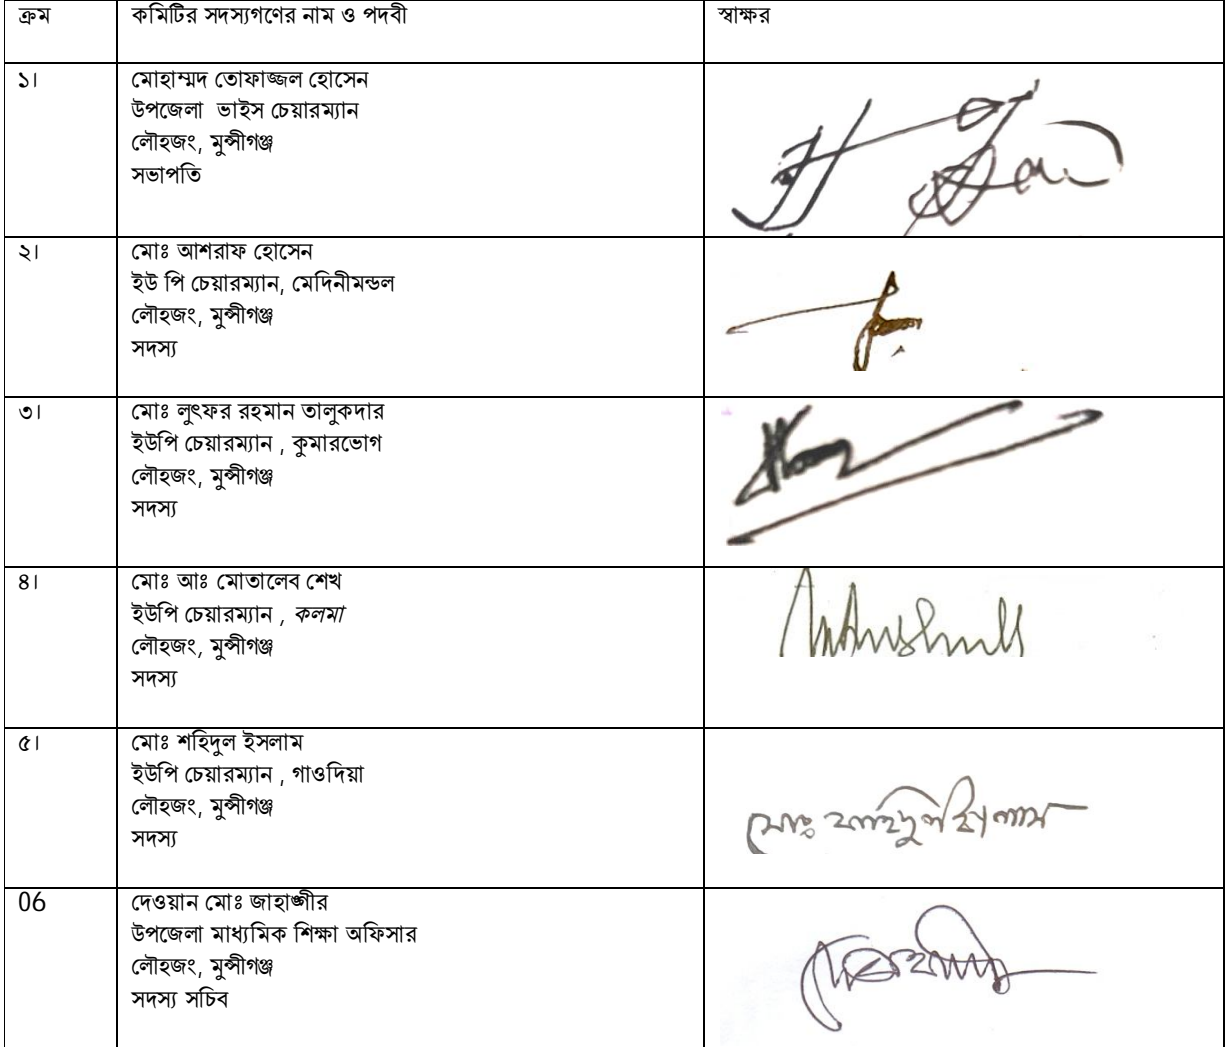 ক্রম কমিটির সদস্যগণের নাম ও পদবী স্বাক্ষর
১। মোহাম্মদ তোফাজ্জল হোসেন
উপজেলা ভাইস চেয়ারম্যান
লৌহজং, মুন্সীগঞ্জ
সভাপতি
২। মোঃ আশরাফ হোসেন
ইউ পি চেয়ারম্যান, মেদিনীমন্ডল
লৌহজং, মুন্সীগঞ্জ
সদস্য
৩। মোঃ লুৎফর রহমান তালুকদার
ইউপি চেয়ারম্যান , কুমারভোগ
লৌহজং, মুন্সীগঞ্জ
সদস্য
৪। মোঃ আঃ মোতালেব শেখ
ইউপি চেয়ারম্যান , কলমা
লৌহজং, মুন্সীগঞ্জ
সদস্য
৫। মোঃ শহিদুল ইসলাম
ইউপি চেয়ারম্যান , গাওদিয়া
লৌহজং, মুন্সীগঞ্জ
সদস্য
মোঃ শহিদুল ইসলাম
06 দেওয়ান মোঃ জাহাঙ্গীর
উপজেলা মাধ্যমিক শিক্ষা অফিসার
লৌহজং, মুন্সীগঞ্জ
সদস্য সচিব